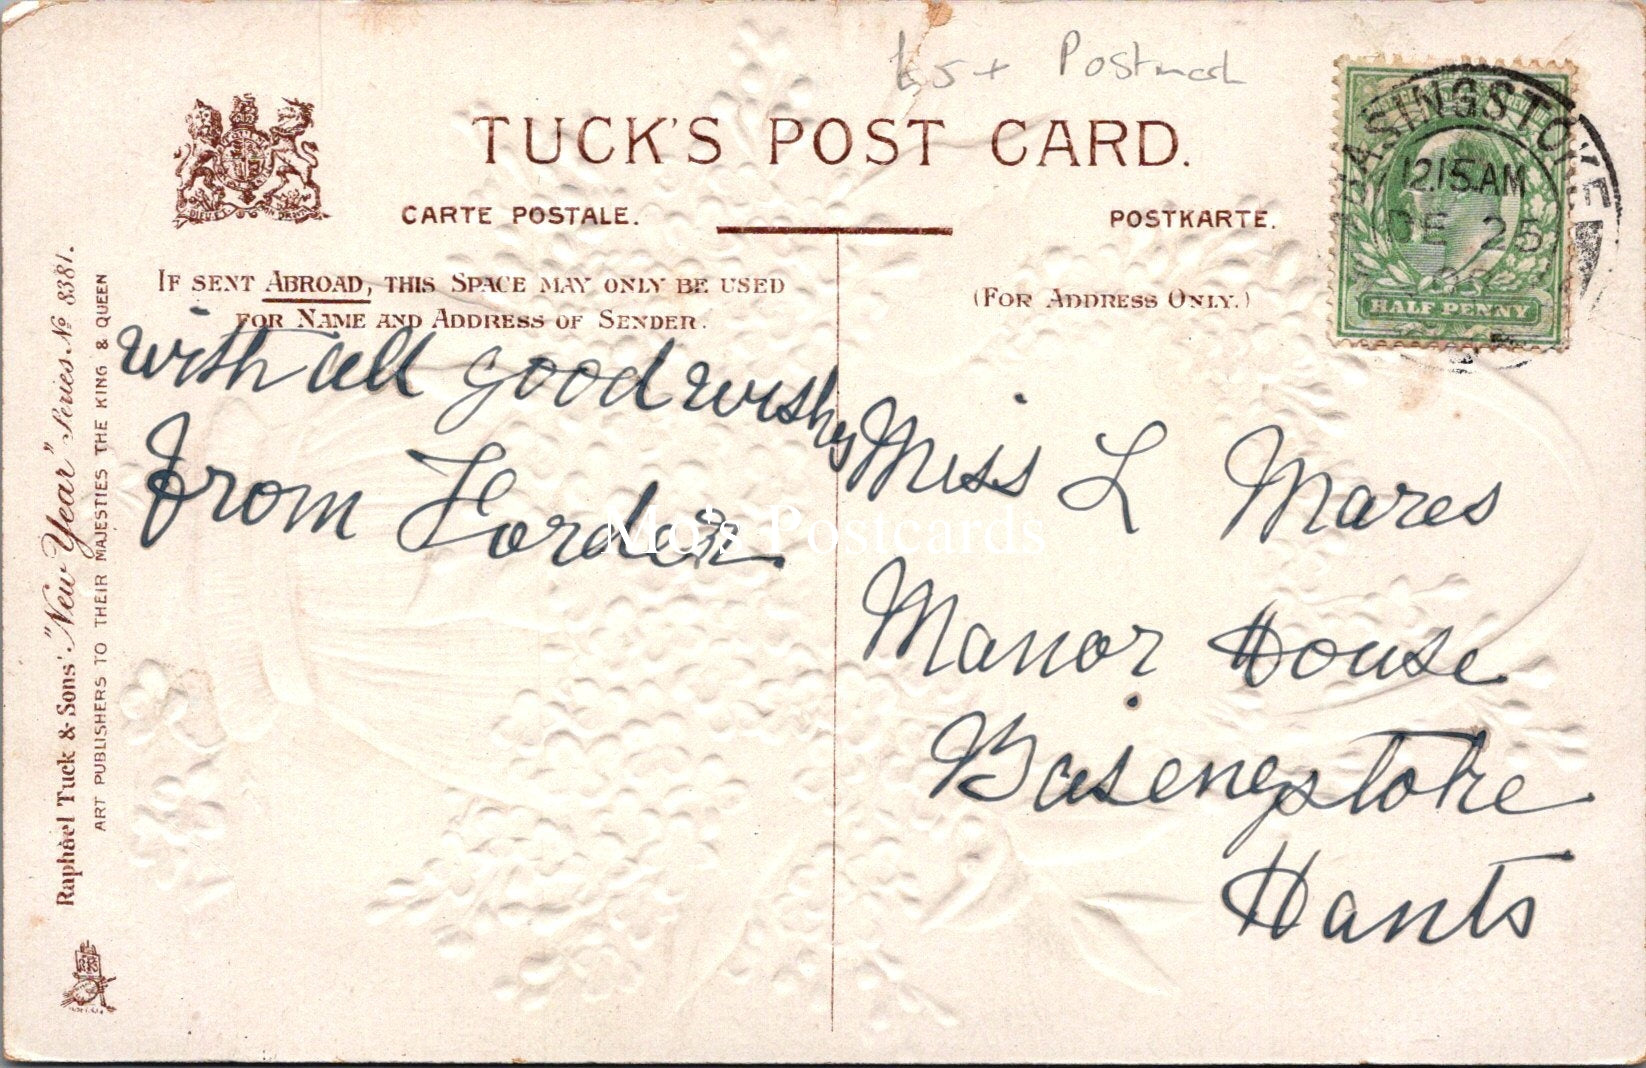 £5+ Postmark
TUCK'S POST CARD.
CARTE POSTALE.
POSTKARTE.
IF SENT ABROAD, THIS SPACE MAY ONLY BE USED
FOR NAME AND ADDRESS OF SENDER.
(FOR ADDRESS ONLY.)
BASINGSTOKE
12.15 AM
DE 25
HALF PENNY
with all good wishes
from Forder
Miss L Mares
Manor House
Basingstoke
Hants
Mo's Postcards
Raphael Tuck & Sons' "New Year" Series. No 8381.
ART PUBLISHERS TO THEIR MAJESTIES THE KING & QUEEN